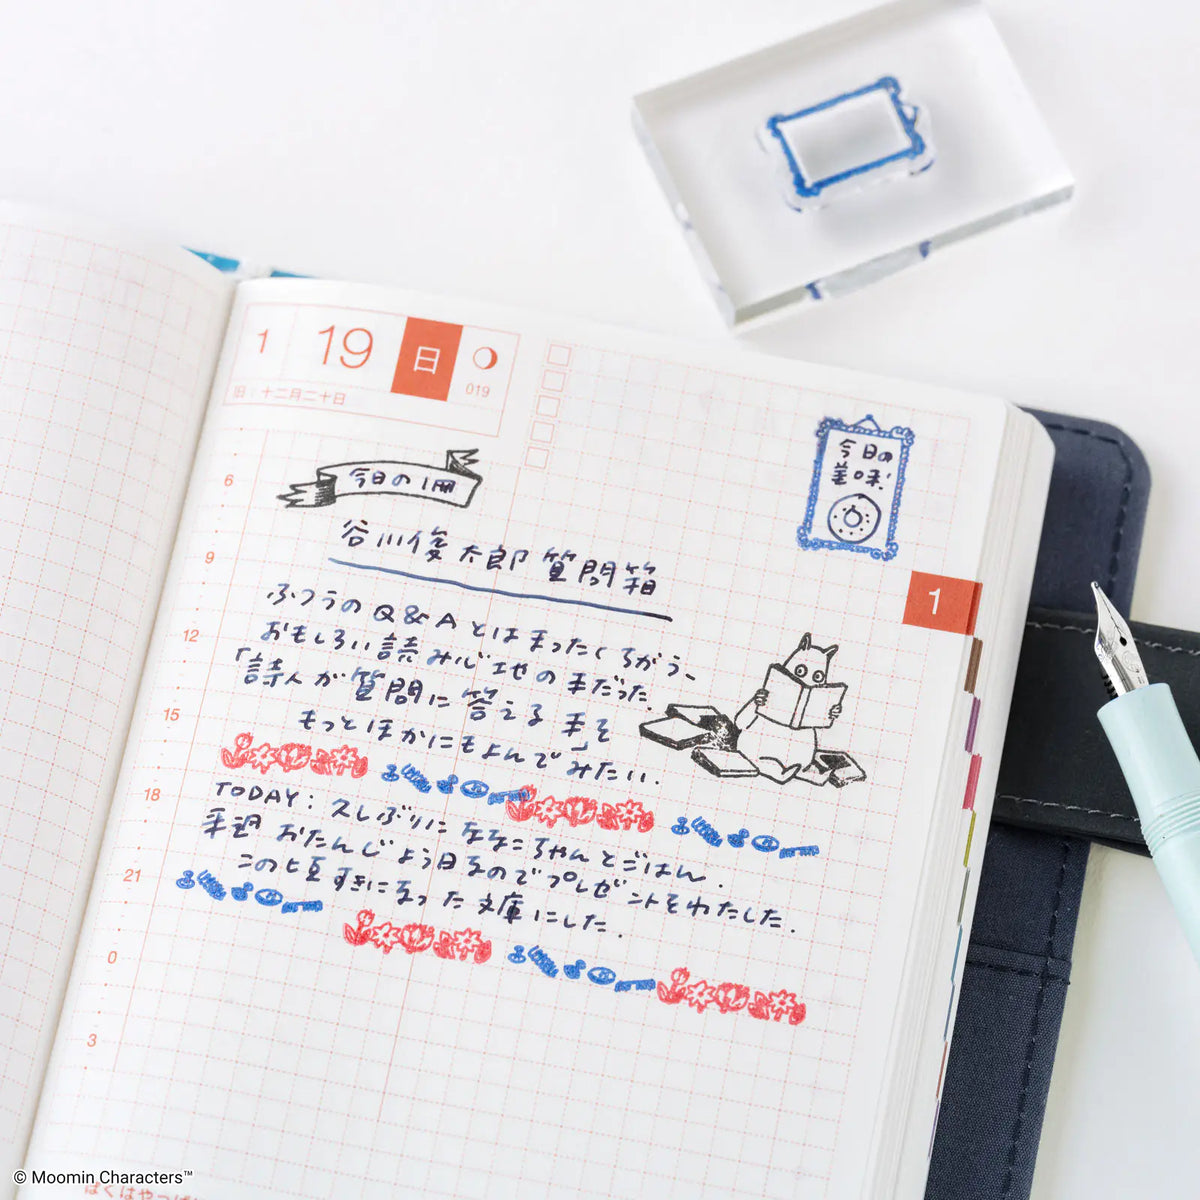 1 19 日
019
旧：十二月二十日
今日の1冊
今日の
美味!
谷川俊太郎質問箱
ふつうのQ&Aとはまったくちがう、
おもしろい読み心地の本だった。
「詩人が質問に答える本」を
もっとほかにもよんでみたい.
TODAY: 久しぶりに ななこちゃんとごはん.
来週 おたんじょう日なのでプレゼントをわたした.
この頃すきになった文庫にした.
1
6
9
12
15
18
21
0
3
© Moomin Characters™